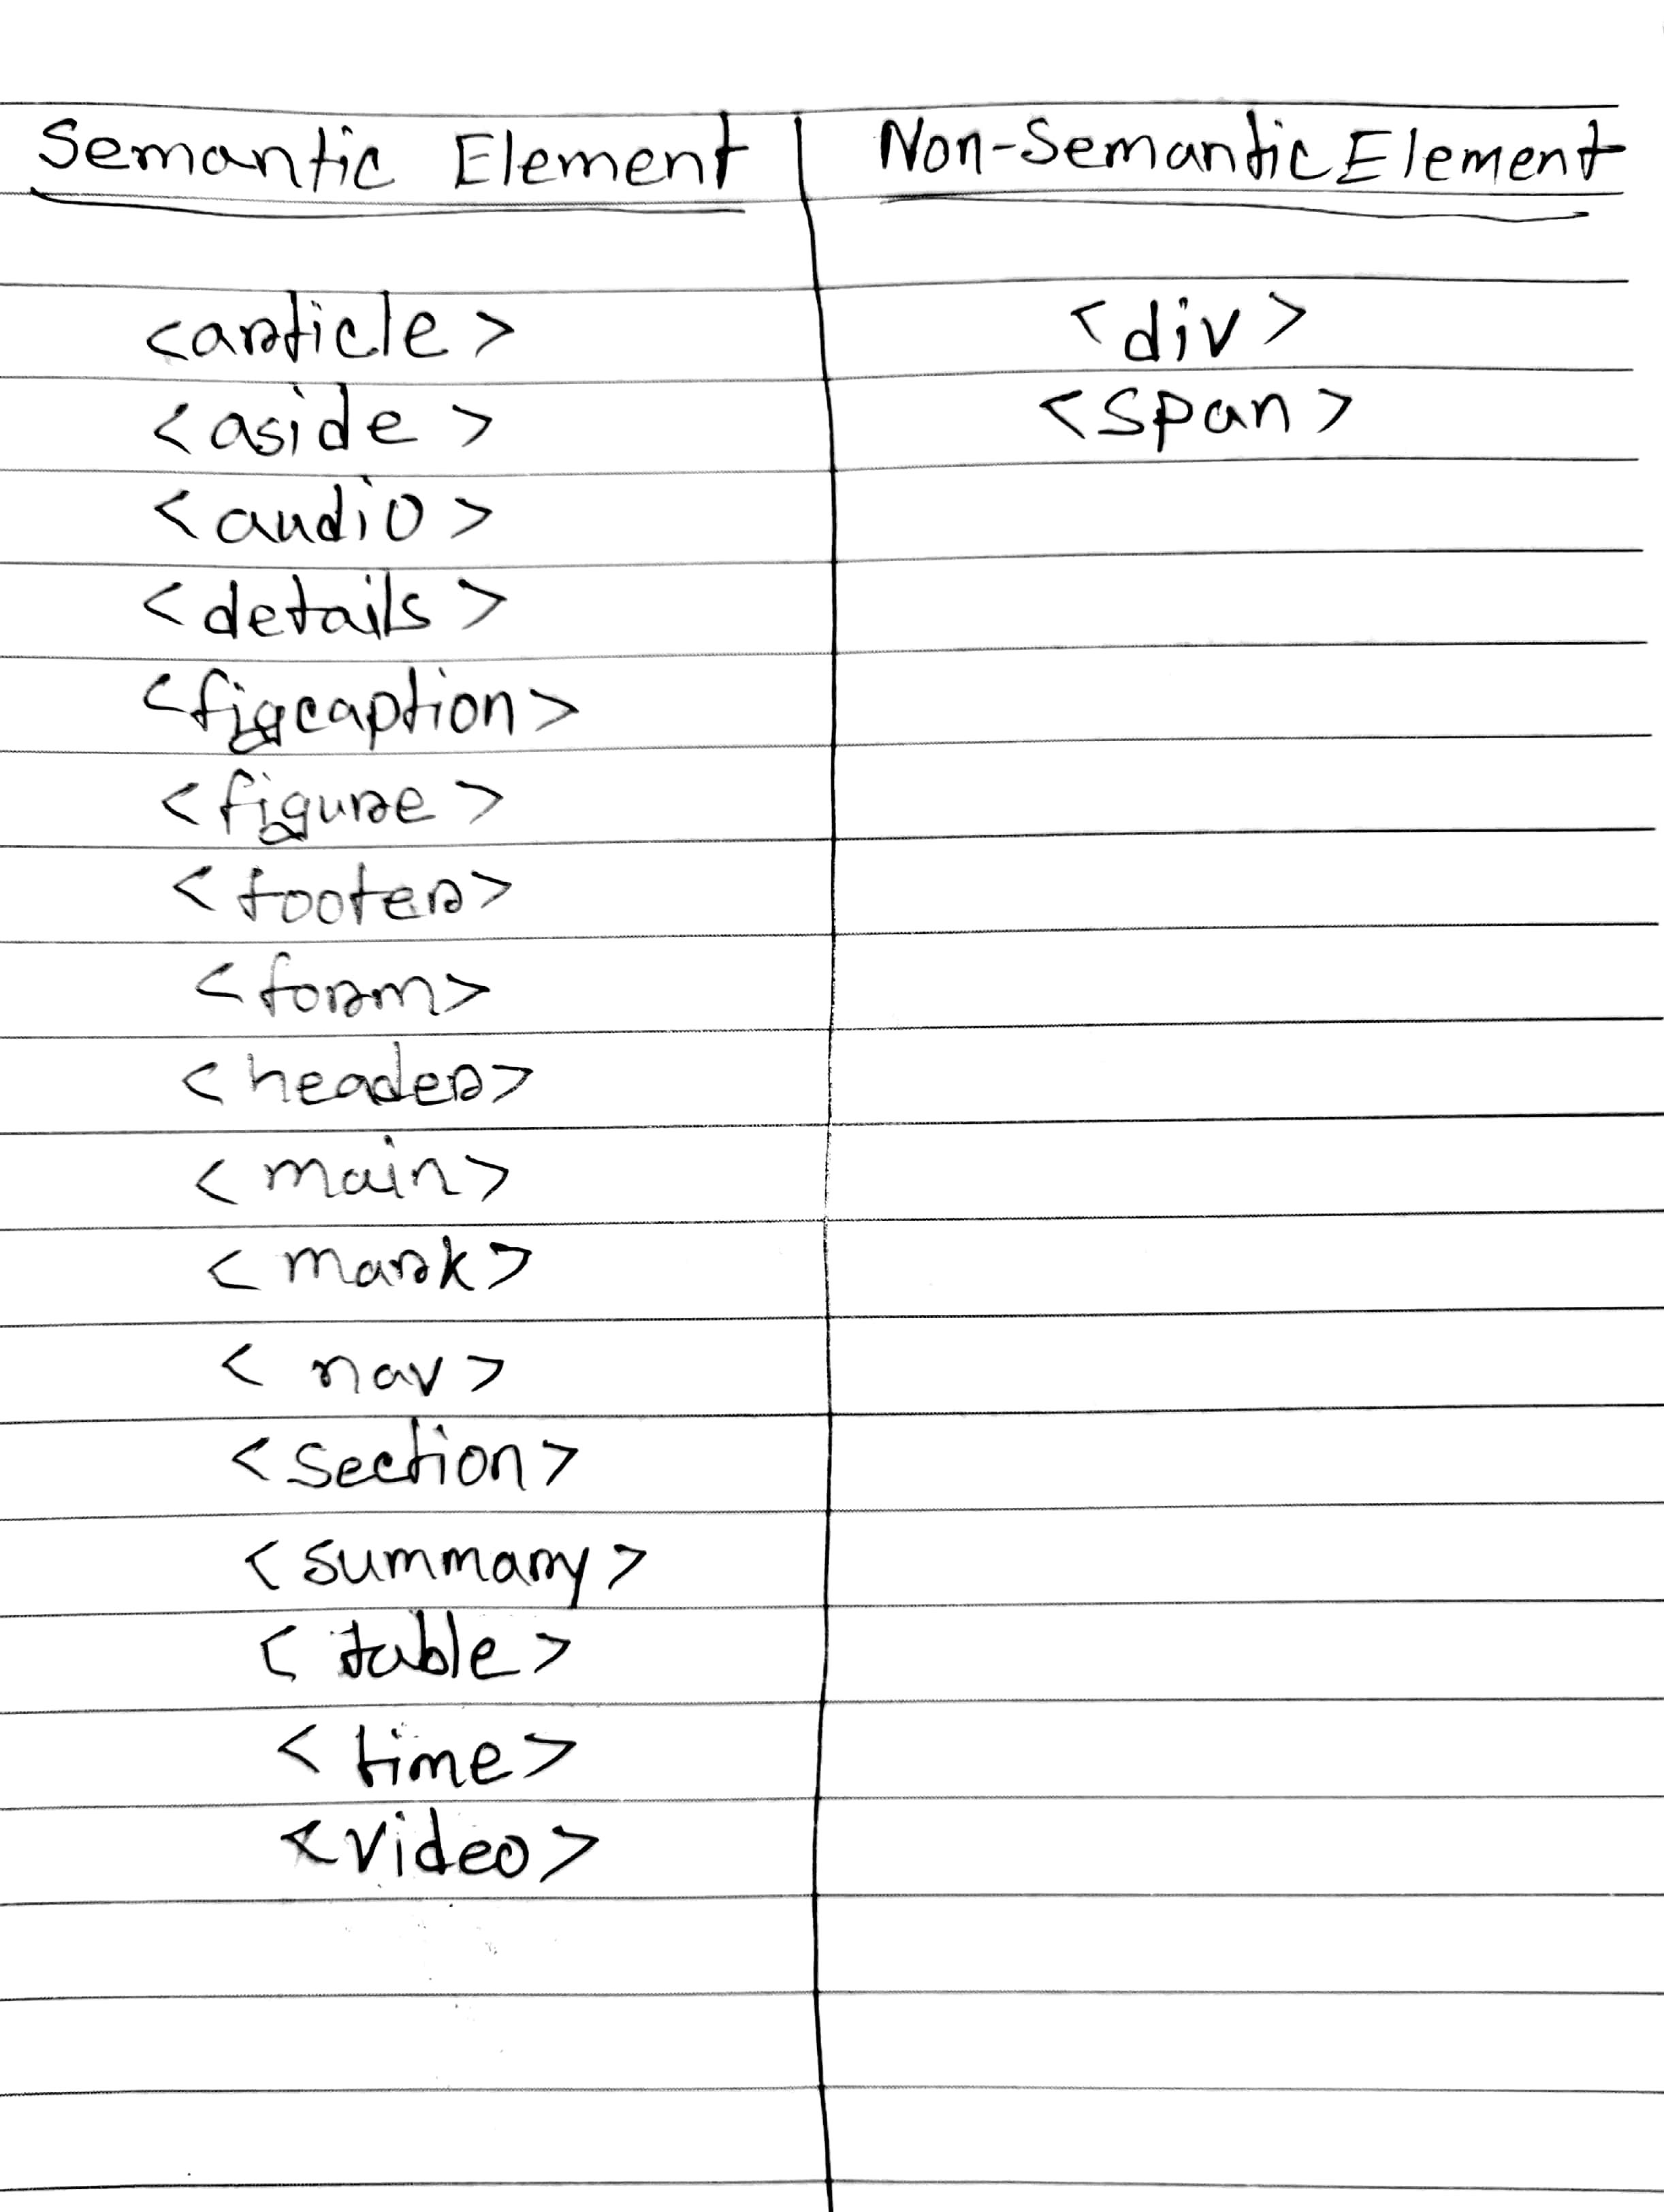 Semantic Element | Non-Semantic Element
<article> <div>
<aside> <span>
<audio>
<details>
<figcaption>
<figure>
<footer>
<form>
<header>
<main>
<mark>
<nav>
<section>
<summary>
<table>
<time>
<video>